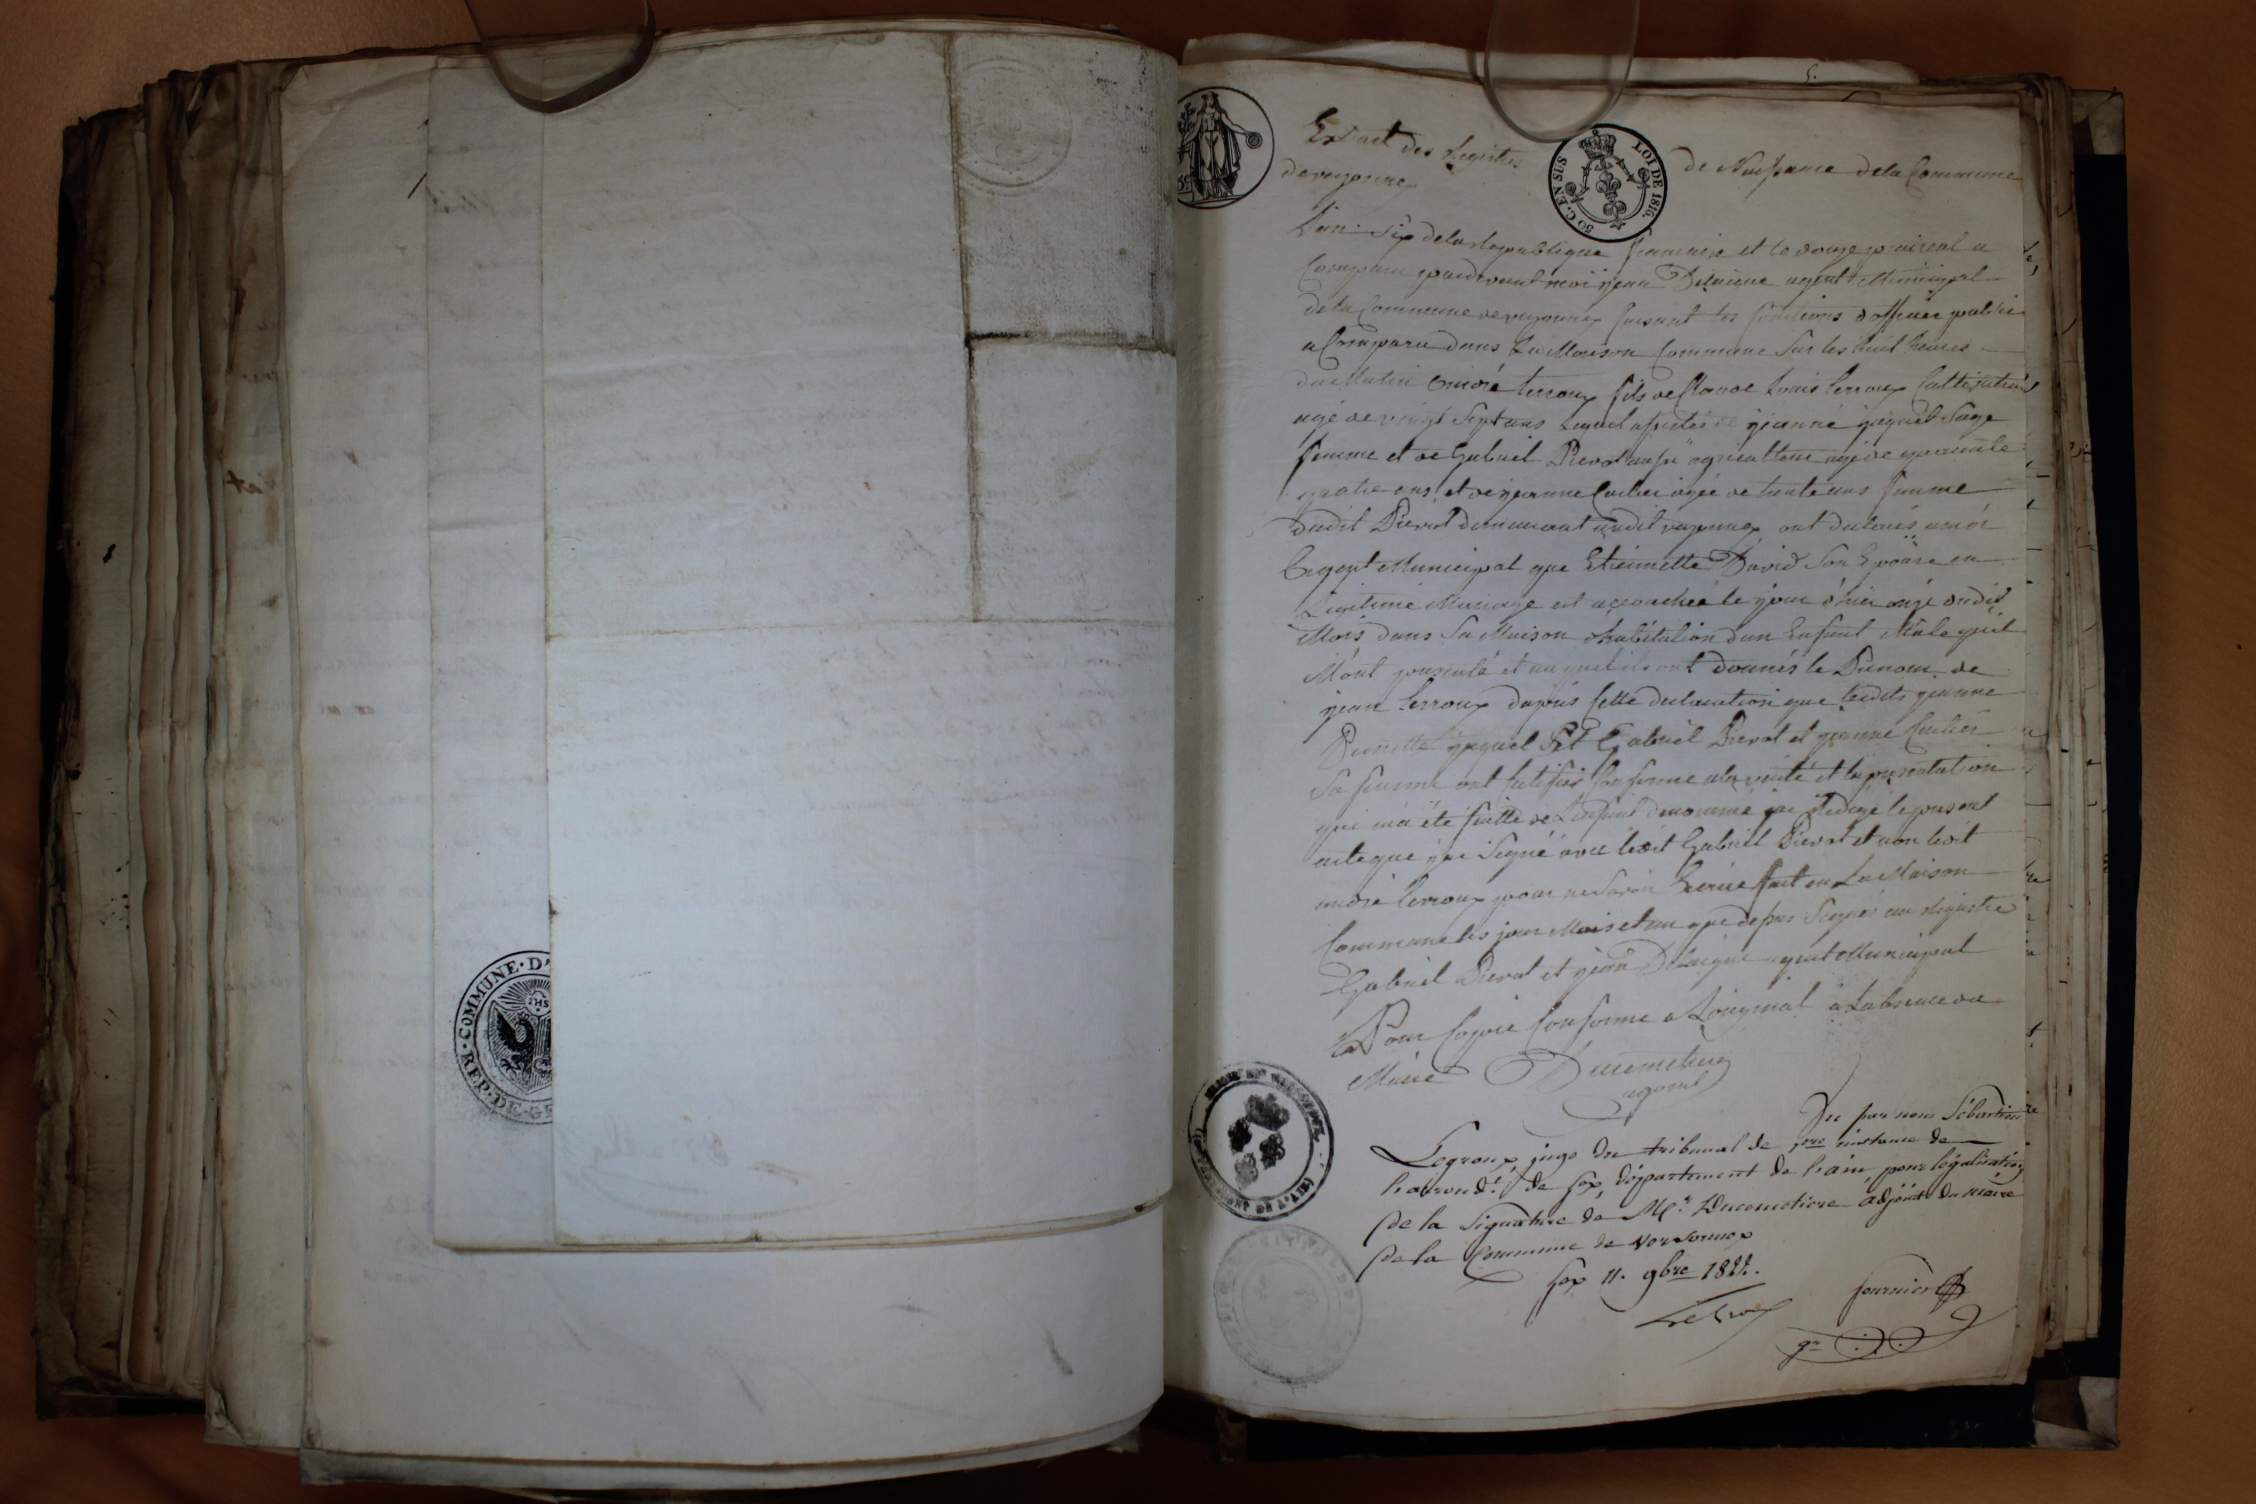 REP. DE GE
COMMUNE. D'
IHS
50 C. EN SUS
LOI DE 1816.
Extrait des Registres de Naissance de la Commune
de
L'an Six de la Republique francaise et le douze prairial a
Comparu pardevant moi jean agent Municipal
de la Commune de faisant les fonctions d'officier public
a Comparu dans La Maison Commune Sur les huit heures
du Matin andré Lerroux fils de Claude Louis Lerroux Cultivateur
agé de vingt Sept ans Lequel assistés de jeanne jaquet Sage
femme et de Gabriel Prevot aussi agriculteur agé de quarante
quatre ans et de jeanne agée de trente ans femme
dudit Prevot demeurant audit ont declarés a moi
Lagent Municipal que Etiennette David Son Epouse en
Legitime Mariage est accouchée le jour d'hier onze dudit
Mois dans Sa Maison d'habitation d'un Enfant Male qu'il
M'ont presenté et auquel ils ont donnés le Prenom de
jean Lerroux dapres Cette declaration que lesdits jeanne
jaquet et Gabriel Prevot et jeanne
Sa femme ont Certifiés Conforme a la verité et la presentation
qui m'a été faitte de L'enfant denommé jai Redigé le present
acte que jai Signé avec ledit Gabriel Prevot et non ledit
andré Lerroux pour ne Savoir Ecrire fait en La Maison
Commune les jour Mois et an que dessus Signés au Registre
Gabriel Prevot et jean agent Municipal
Pour Copie Conforme a Loriginal a Labsence du
Maire
Vu par nous Sébastien
Legroux juge du tribunal de 1re instance de
l'arrondt. de Gex, département de l'ain, pour légalisation
de la signature de Mr. Ducimetiere adjoint du maire
de la Commune de versonnex
Gex 11. 9bre 1822.
fournier
gr.